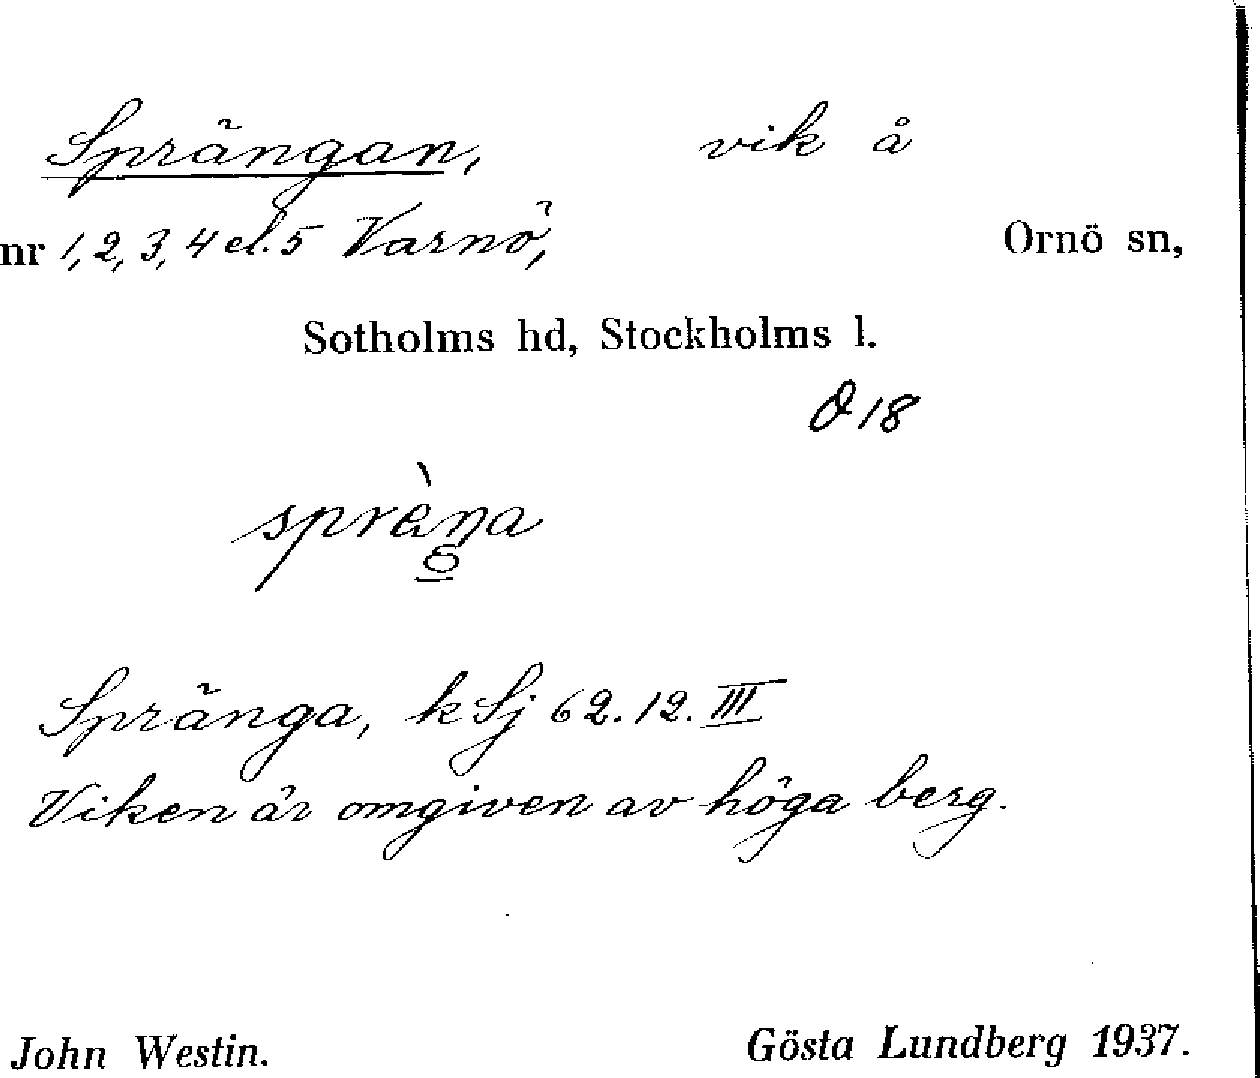 Sprängan, vik å
nr 1, 2, 3, 4 el. 5 Varnö, Ornö sn,
Sotholms hd, Stockholms l.
O 18
sprèŋa
Spränga, k Sj 62.12.III
Viken är omgiven av höga berg.
John Westin. Gösta Lundberg 1937.